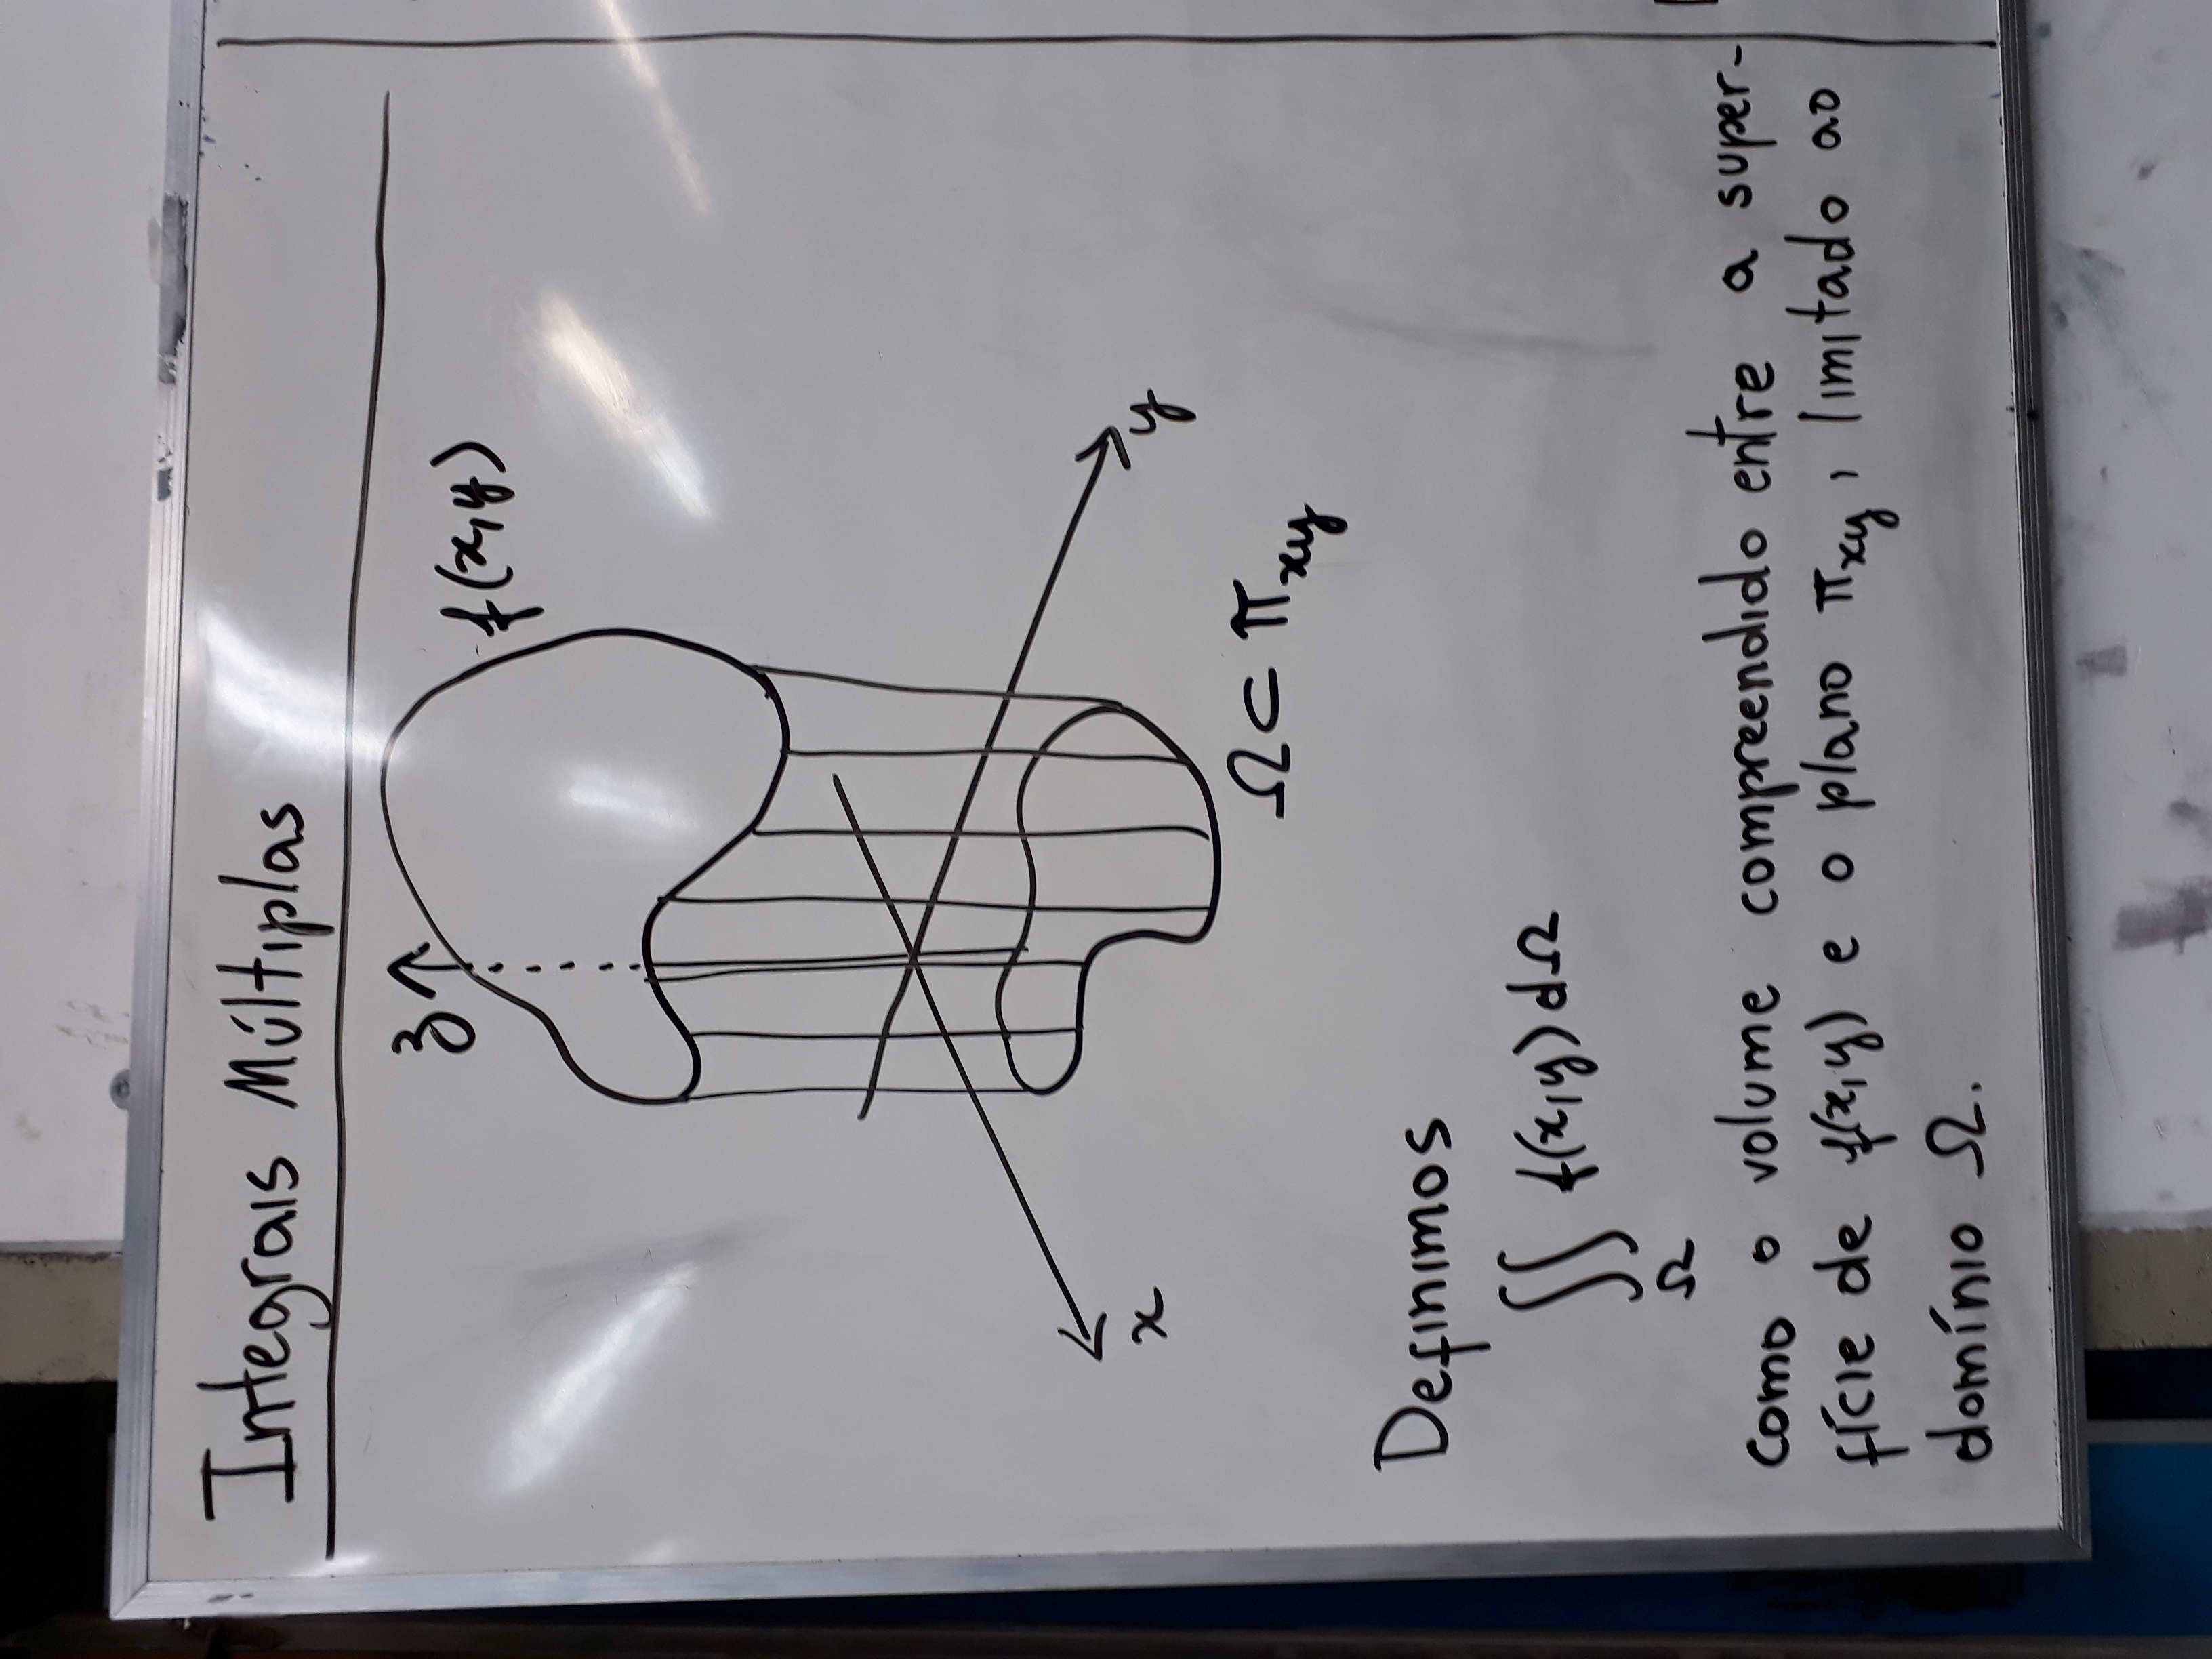 Integrais Múltiplas
z
f(x,y)
x
y
Ω ⊂ π_xy
Definimos
∬ f(x,y) dΩ
Ω
como o volume compreendido entre a super-
fície de f(x,y) e o plano π_xy, limitado ao
domínio Ω.